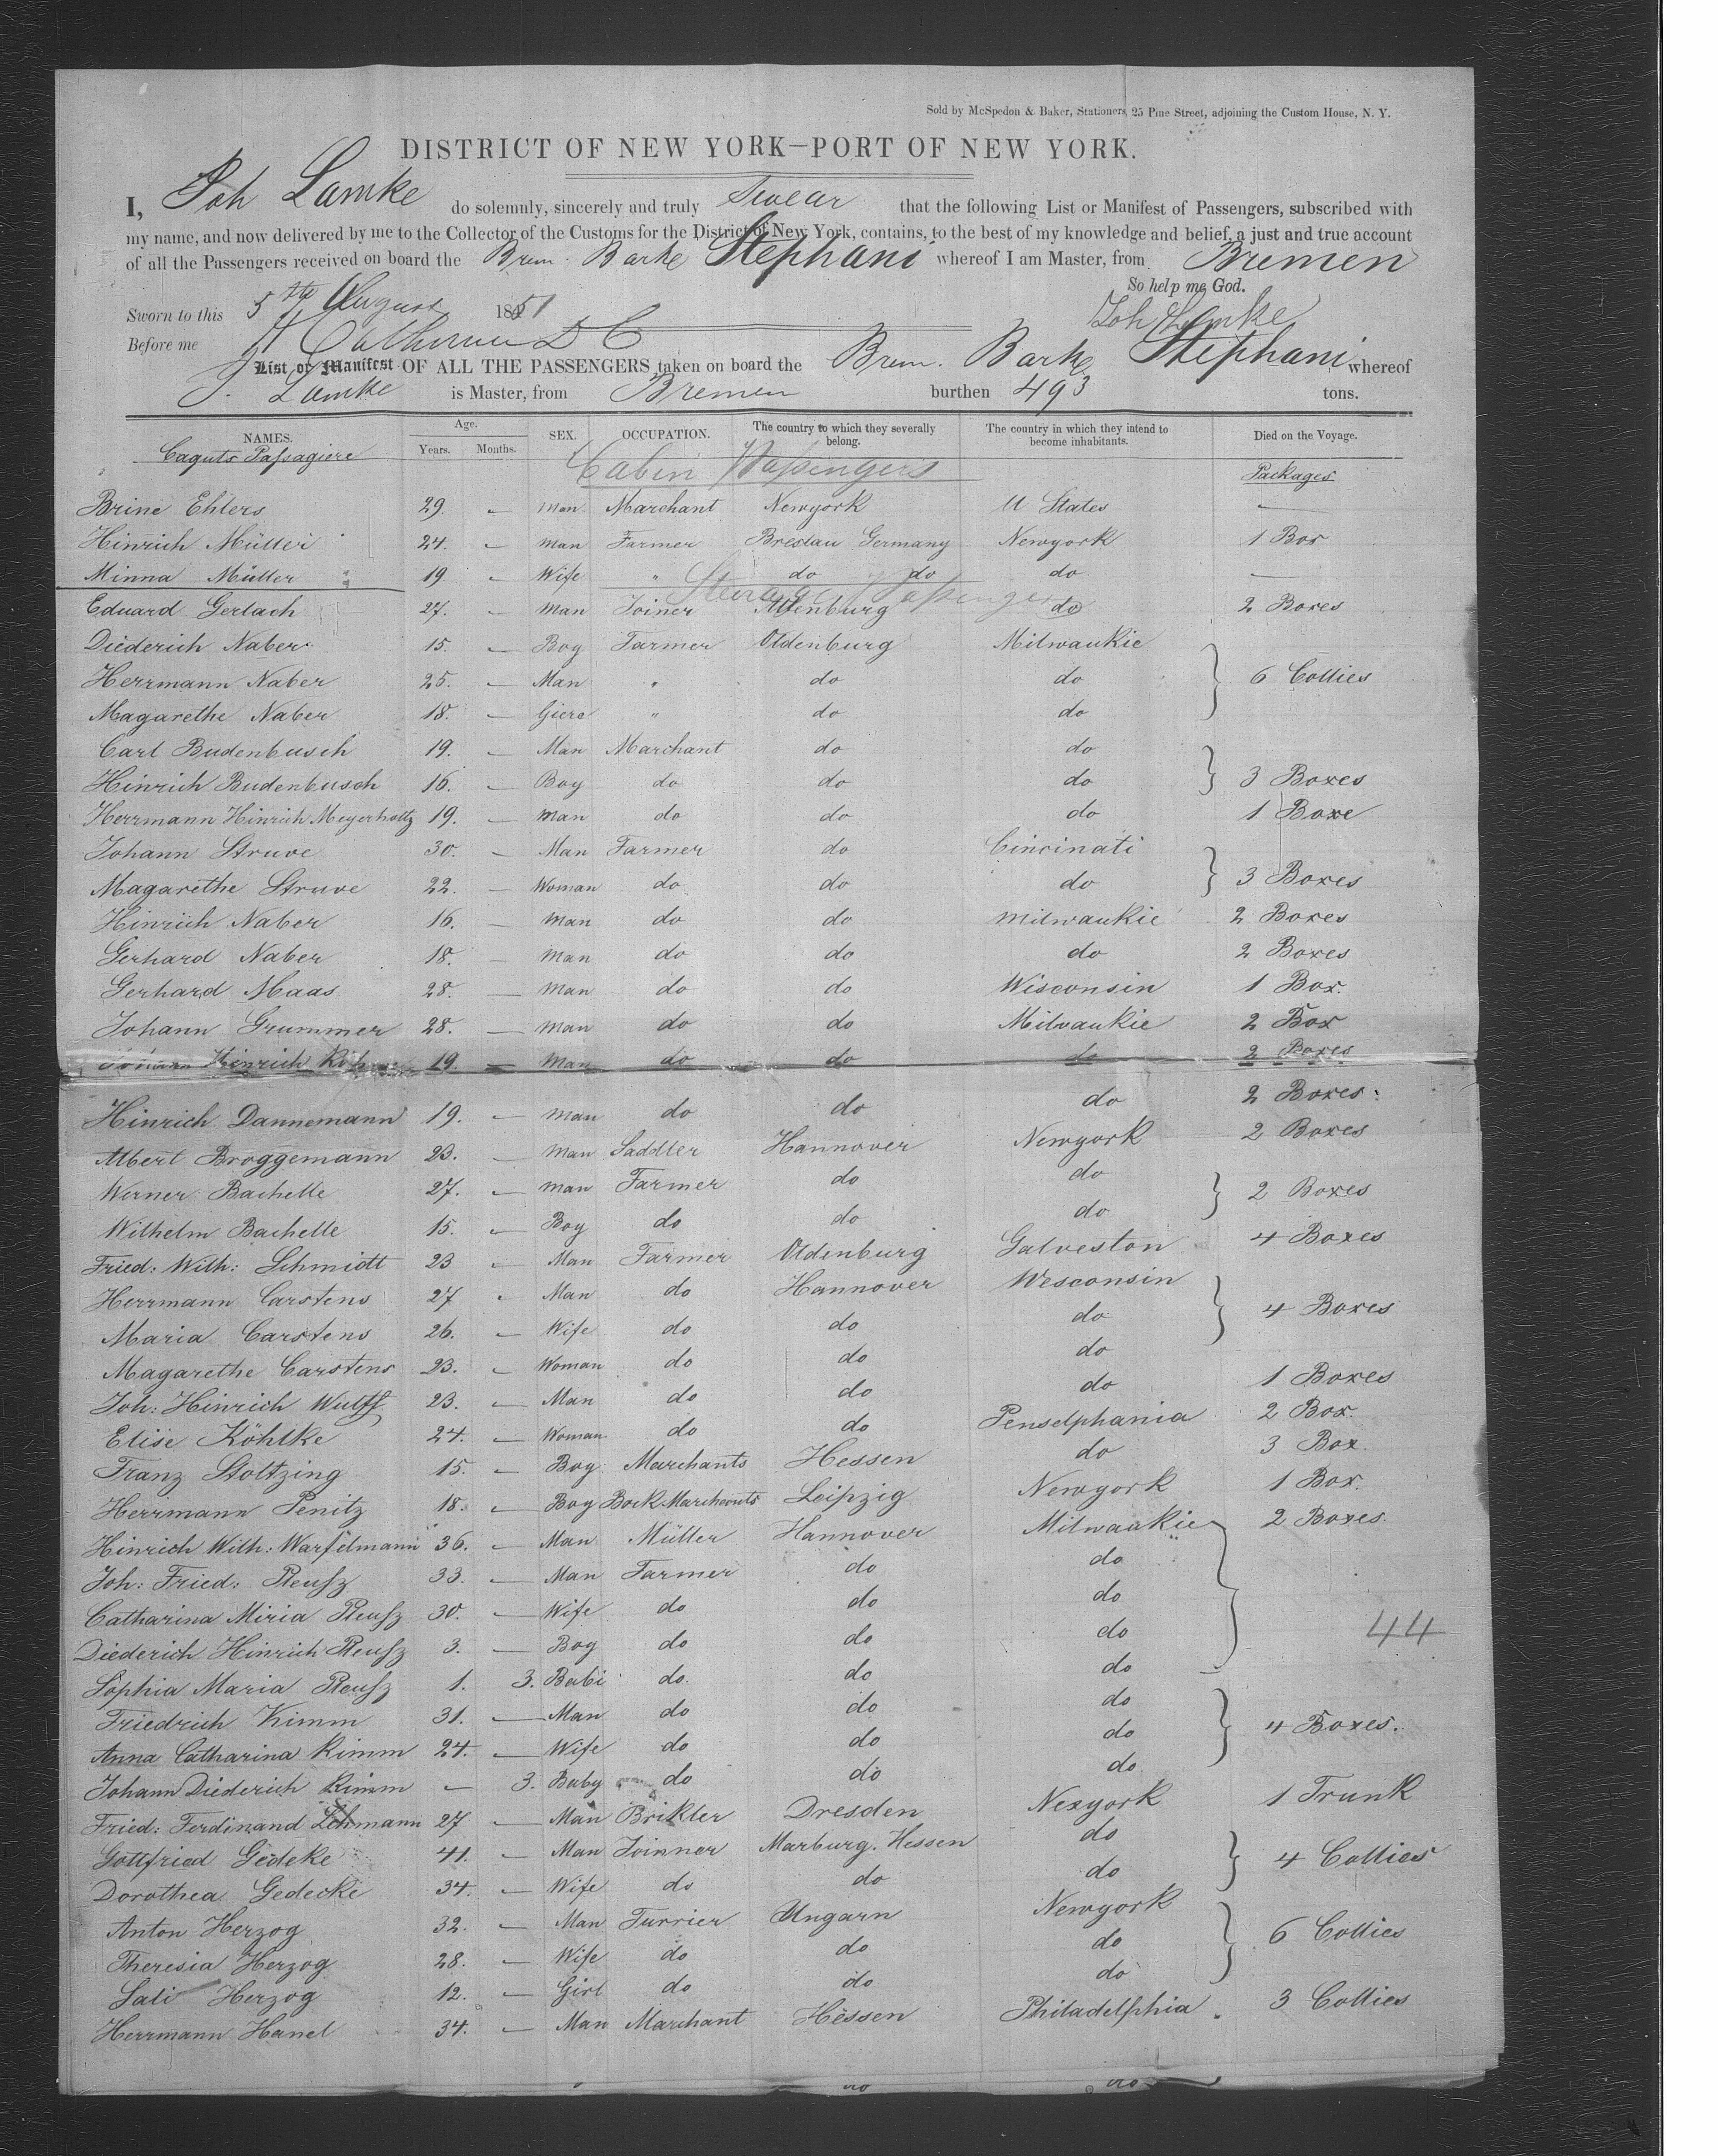 Sold by McSpedon & Baker, Stationers, 25 Pine Street, adjoining the Custom House, N. Y.
DISTRICT OF NEW YORK—PORT OF NEW YORK.
I, Joh Lamke do solemnly, sincerely and truly Swear that the following List or Manifest of Passengers, subscribed with
my name, and now delivered by me to the Collector of the Customs for the District of New York, contains, to the best of my knowledge and belief, a just and true account
of all the Passengers received on board the Brem. Barke Stephani whereof I am Master, from Bremen
So help me God.
Sworn to this 5th August 1851 Joh Lamke
Before me
List or Manifest OF ALL THE PASSENGERS taken on board the Brem. Barke Stephani whereof
J. Lamke is Master, from Bremen burthen 493 tons.
NAMES. Age. Years. Months. SEX. OCCUPATION. The country to which they severally belong. The country in which they intend to become inhabitants. Died on the Voyage.
Cajuts Passagiere Cabin Passengers Packages
Brine Ehlers 29. — Man Marchant Newyork U States —
Hinrich Müller 24. — Man Farmer Breslau Germany Newyork 1 Box
Minna Müller 19 — Wife " do do do —
Steirage Passenger
Eduard Gerlach 27. — Man Joiner Altenburg do 2 Boxes
Diederich Naber 15. — Boy Farmer Oldenburg Milwaukie
Herrmann Naber 25. — Man " do do 6 Collies
Magarethe Naber 18. — Giere " do do
Carl Budenbusch 19. — Man Marchant do do
Hinrich Budenbusch 16. — Boy do do do 3 Boxes
Herrmann Hinrich Meyerholtz 19. — Man do do do 1 Boxe
Johann Struve 30. — Man Farmer do Cincinati
Magarethe Struve 22. — Woman do do do 3 Boxes
Hinrich Naber 16. — Man do do Milwaukie 2 Boxes
Gerhard Naber 18. — Man do do do 2 Boxes
Gerhard Maas 28. — Man do do Wisconsin 1 Box.
Johann Grummer 28. — Man do do Milvaukie 2 Box
Johann Hinrich 19. — Man do do do 2 Boxes
Hinrich Dannemann 19. — Man do do do 2 Boxes
Albert Broggemann 23. — Man Saddler Hannover Newyork 2 Boxes
Werner Bachelle 27. — Man Farmer do do 2 Boxes
Wilhelm Bachelle 15. — Boy do do do
Fried: Wilh: Schmidt 23 — Man Farmer Oldenburg Galveston 4 Boxes
Herrmann Carstens 27 — Man do Hannover Wesconsin
Maria Carstens 26. — Wife do do do 4 Boxes
Magarethe Carstens 23. — Woman do do do
Joh: Hinrich Wulff 23. — Man do do do 1 Boxes
Elise Köhlke 24. — Woman do do Penselphania 2 Box.
Franz Stoltzing 15. — Boy Marchants Hessen do 3 Box.
Herrmann Penitz 18. — Boy Bock Marcheonts Leipzig Newyork 1 Box.
Hinrich Wilh: Warfelmann 36. — Man Müller Hannover Milwaakie 2 Boxes.
Joh: Fried: Pleusz 33. — Man Farmer do do
Catharina Miria Pleusz 30. — Wife do do do
Diederich Hinrich Pleusz 3. — Boy do do do 44
Sophia Maria Pleusz 1. 3. Babi do. do do
Friedrich Kimm 31. — Man do do do
Anna Catharina Kimm 24. — Wife do do do 4 Boxes.
Johann Diederich Kimm — 3. Baby do do do
Fried: Ferdinand Lehmann 27 — Man Brikler Dresden Nexyork 1 Trunk
Gottfried Gedeke 41. — Man Joinner Marburg. Hessen do 4 Collies
Dorothea Gedecke 34. — Wife do do do
Anton Herzog 32. — Man Furrier Ungarn Newyork
Theresia Herzog 28. — Wife do do do 6 Collies
Sali Herzog 12. — Girl do do do
Herrmann Hanel 34. — Man Marchant Hessen Philadelphia 3 Collies
do do